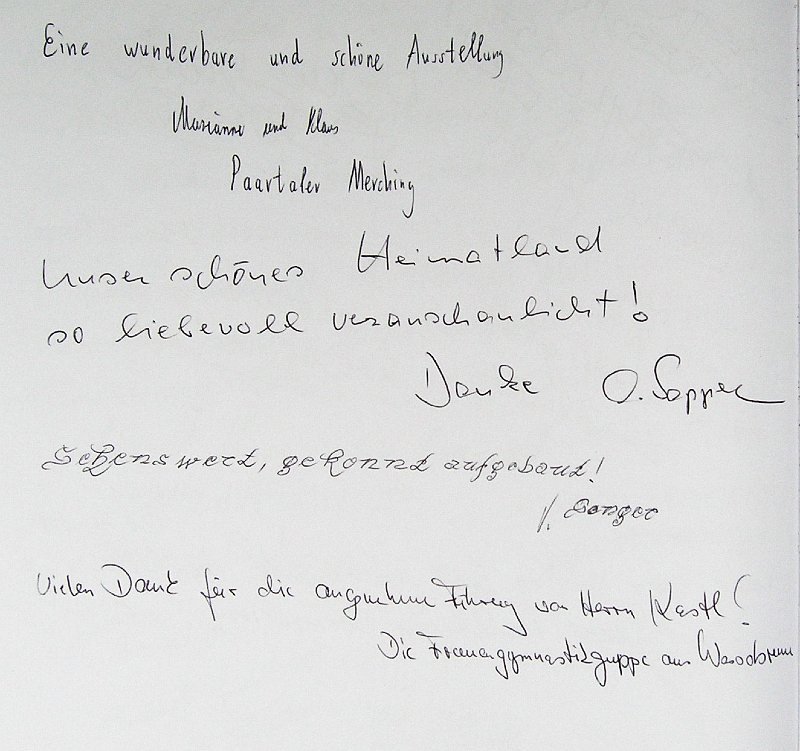 Eine wunderbare und schöne Ausstellung
Marianne und Klaus
Paartaler Merching
Unser schönes Heimatland
so liebevoll veranschaulicht!
Danke O. Sapper
Sehenswert, gekonnt aufgebaut!
Vielen Dank für die angenehme Führung von Herrn Kastl!
Die Frauengymnastikgruppe aus